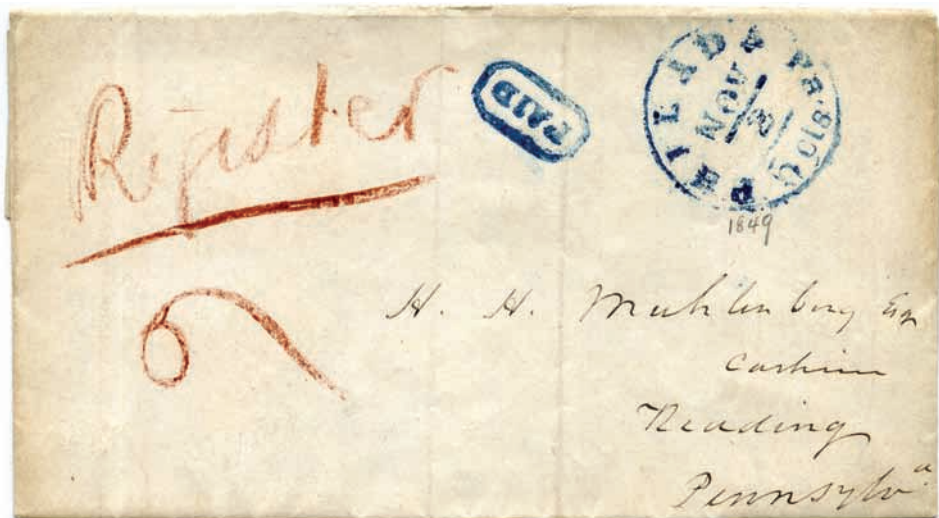 Register
PAID
PHILADA Pa.
NOV
2
5 Cts.
1849
H. H. Muhlenberg Esq
Cashier
Reading
Pennsylva